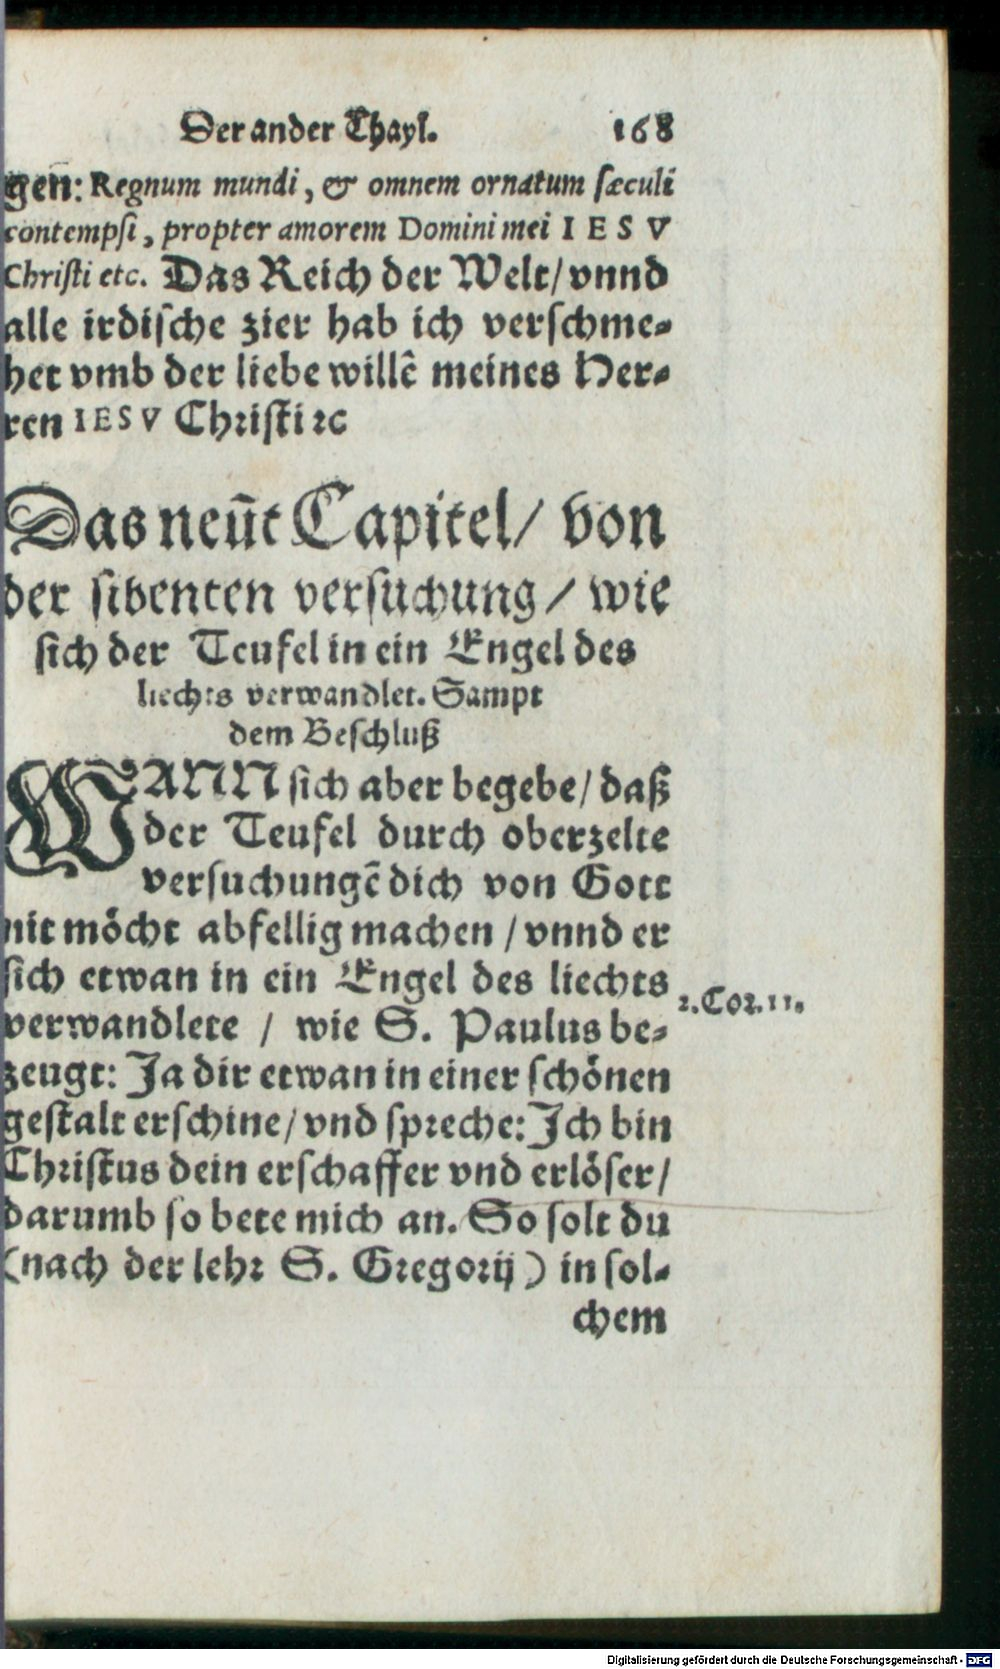 Der ander Thayl. 168
gen: Regnum mundi, & omnem ornatum sæculi
contempsi, propter amorem Domini mei IESV
Christi etc. Das Reich der Welt/ vnnd
alle irdische zier hab ich verschme-
het vmb der liebe willẽ meines Her-
ren IESV Christi ꝛc
Das neũt Capitel/ von
der sibenten versuchung/ wie
sich der Teufel in ein Engel des
liechts verwandlet. Sampt
dem Beschluß
WANN sich aber begebe/ daß
der Teufel durch oberzelte
versuchungẽ dich von Gott
nit möcht abfellig machen/ vnnd er
sich etwan in ein Engel des liechts
2. Cor. 11.
verwandlete/ wie S. Paulus be-
zeugt: Ja dir etwan in einer schönen
gestalt erschine/ vnd spreche: Ich bin
Christus dein erschaffer vnd erlöser/
darumb so bete mich an. So solt du
(nach der lehr S. Gregorij) in sol-
chem
Digitalisierung gefördert durch die Deutsche Forschungsgemeinschaft - DFG